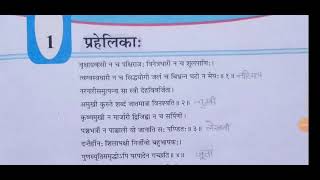 1 प्रहेलिकाः
वृक्षाग्रवासी न च पक्षिराजः त्रिनेत्रधारी न च शूलपाणिः।
त्वग्वस्त्रधारी न च सिद्धयोगी जलं च बिभ्रन्न घटो न मेघः॥१॥
नरनारीसमुत्पन्ना सा स्त्री देहविवर्जिता।
अमुखी कुरुते शब्दं जातमात्रा विनश्यति॥२॥
कृष्णमुखी न मार्जारी द्विजिह्वा न च सर्पिणी।
पञ्चभर्त्री न पाञ्चाली यो जानाति स पण्डितः॥३॥
दन्तैर्हीनः शिलाभक्षी निर्जीवो बहुभाषकः।
गुणस्यूतिसमृद्धोऽपि परपादेन गच्छति॥४॥